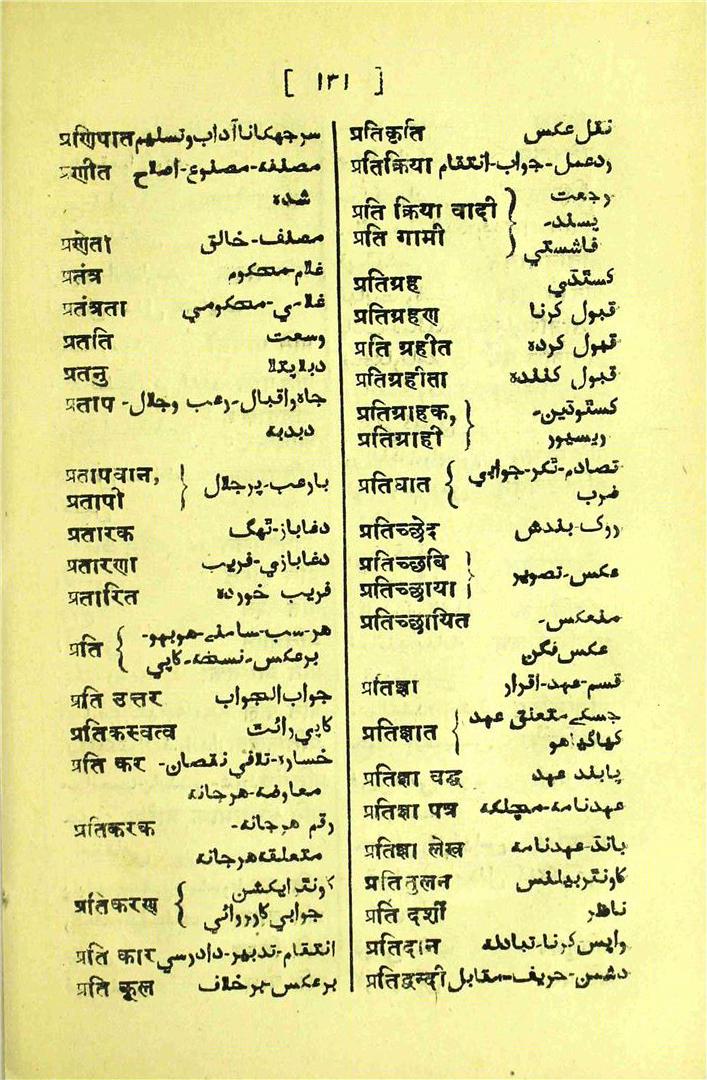 [ ۱۳۱ ]
प्रणिपात سر جھکانا آداب و تسلیم
प्रणीत مصنفہ-مصنوع-اصلاح
شدہ
प्रणेता مصنف-خالق
प्रतंत्र غلام-محکوم
प्रतंत्रता غلامي-محکومي
प्रतति وسعت
प्रतनु دبلا پتلا
प्रताप جاہ و اقبال-رعب و جلال-
دبدبہ
प्रतापवान, प्रतापी } بارعب-پر جلال
प्रतारक دغاباز-ٹھگ
प्रतारणा دغابازي-فریب
प्रतारित فریب خوردہ
प्रति { ھر-سب-سامنے-ھوبہو-
برعکس-نسخہ-کاپي
प्रति उत्तर جواب الجواب
प्रतिकस्वत्व کاپي رائٹ
प्रति कर خسارہ-تلافي نقصان-
معاوضہ-ھرجانہ
प्रतिकरक رقم ھرجانہ-
متعلقہ ھرجانہ
प्रतिकरण { کاونٹر ایکشن
جوابي کارروائي
प्रति कार انتقام-تدبیر-دادرسي
प्रति कूल برعکس-برخلاف
प्रतिकृति نقل عکس
प्रतिक्रिया ردعمل-جواب-انتقام
प्रति क्रिया वादी } رجعت
प्रति गामी پسند-
فاشستي
प्रतिग्रह کسٹڈي
प्रतिग्रहण قبول کرنا
प्रति ग्रहीत قبول کردہ
प्रतिग्रहीता قبول کنندہ
प्रतिग्राहक, } کسٹوڈین-
प्रतिग्राही ریسیور
प्रतिघात { تصادم-ٹکر-جوابي
ضرب
प्रतिच्छेद روک-بندش
प्रतिच्छबि
प्रतिच्छाया } عکس-تصویر
प्रतिच्छायित منعکس-
عکس فگن
प्रतिज्ञा قسم-عہد-اقرار
प्रतिज्ञात { جسکے متعلق عہد
کیا گیا ھو
प्रतिज्ञा बद्ध پابند عہد
प्रतिज्ञा पत्र عہدنامہ-مچلکہ
प्रतिज्ञा लेख بانڈ-عہدنامہ
प्रतितुलन کاونٹر بیلنس
प्रति दर्शी ناظر
प्रतिदान واپس کرنا-تبادلہ
प्रतिद्वन्दी دشمن-حریف-مقابل